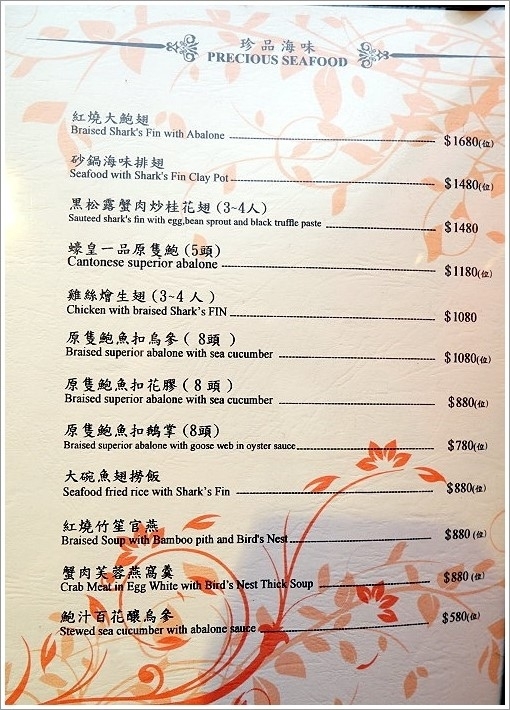 珍品海味
PRECIOUS SEAFOOD
紅燒大鮑翅
Braised Shark's Fin with Abalone $1680(位)
砂鍋海味排翅
Seafood with Shark's Fin Clay Pot $1480(位)
黑松露蟹肉炒桂花翅 (3~4人)
Sauteed shark's fin with egg,bean sprout and black truffle paste $1480
蠔皇一品原隻鮑 (5頭)
Cantonese superior abalone $1180(位)
雞絲燴生翅 (3~4 人 )
Chicken with braised Shark's FIN $1080
原隻鮑魚扣烏參 ( 8頭 )
Braised superior abalone with sea cucumber $1080(位)
原隻鮑魚扣花膠 ( 8 頭 )
Braised superior abalone with sea cucumber $880(位)
原隻鮑魚扣鵝掌 (8頭)
Braised superior abalone with goose web in oyster sauce $780(位)
大碗魚翅撈飯
Seafood fried rice with Shark's Fin $880(位)
紅燒竹笙官燕
Braised Soup with Bamboo pith and Bird's Nest $880 (位)
蟹肉芙蓉燕窩羹
Crab Meat in Egg White with Bird's Nest Thick Soup $880 (位)
鮑汁百花釀烏參
Stewed sea cucumber with abalone sauce $580(位)